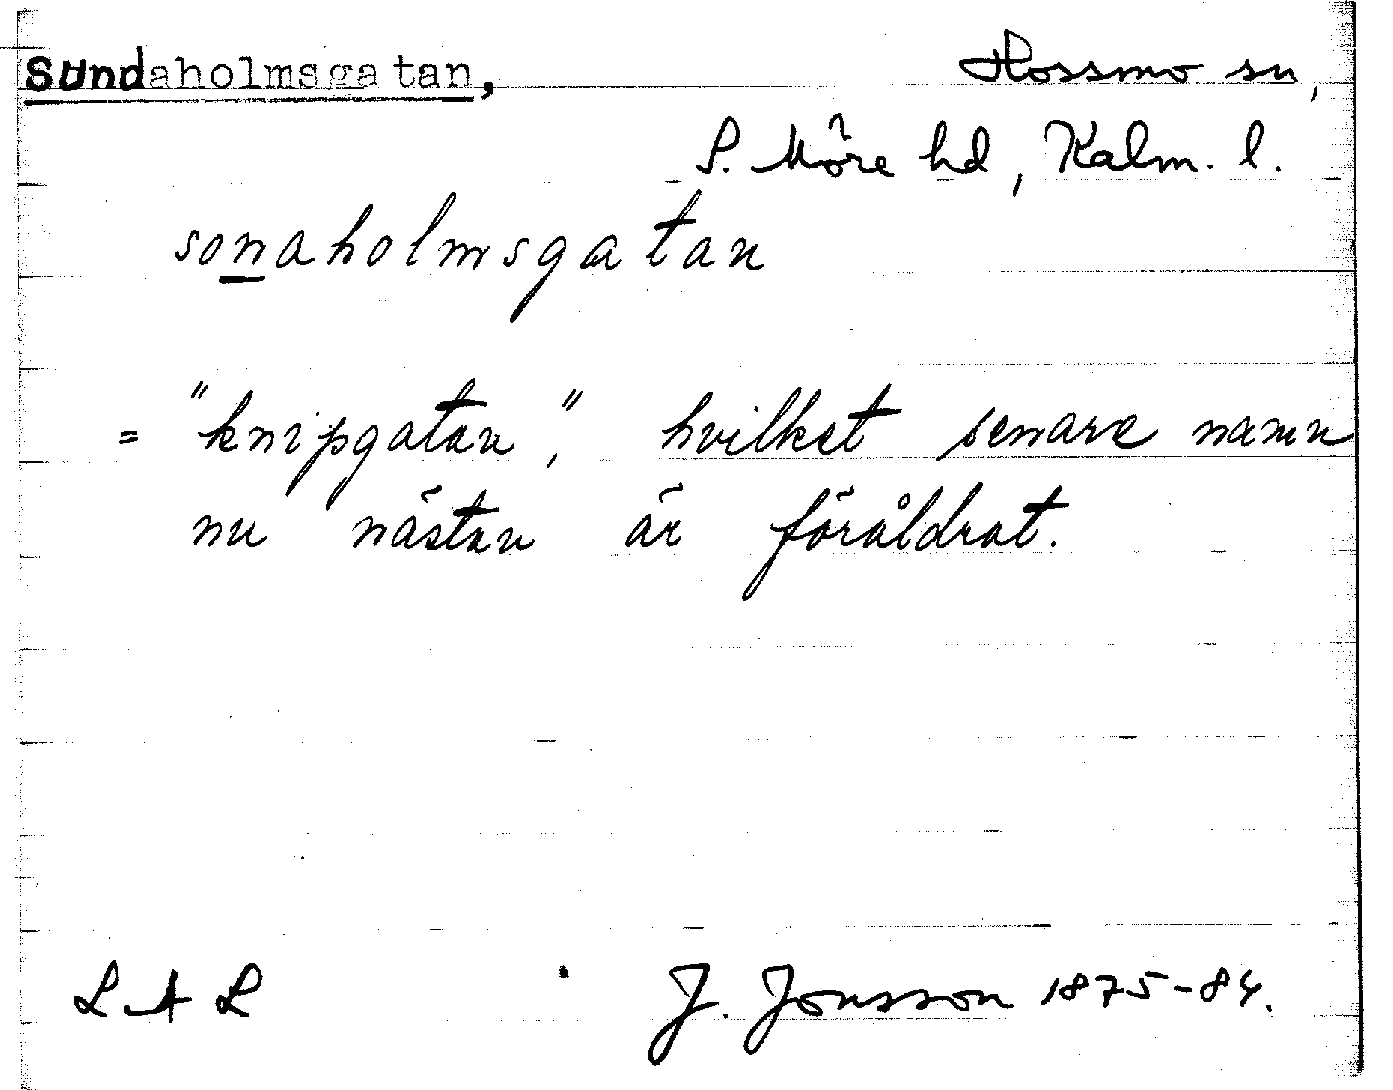 Sundaholmsgatan, Hossmo sn,
S. Möre hd, Kalm. l.
sonaholmsgatan
= "knipgatan", hvilket senare namn
nu nästan är föråldrat.
L A L J. Jonsson 1875-84.